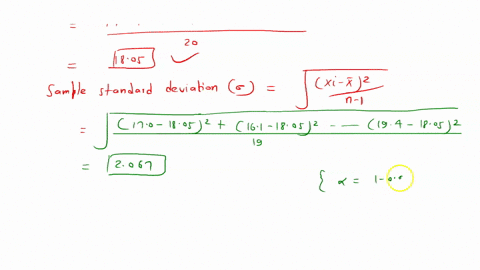 =
20
= 18.05 ✓
Sample standard deviation (σ) = √ (xi-x̄)² / n-1
= √ (17.0-18.05)² + (16.1-18.05)² - — (19.4-18.05)² / 19
= 2.067
{ α = 1-0.